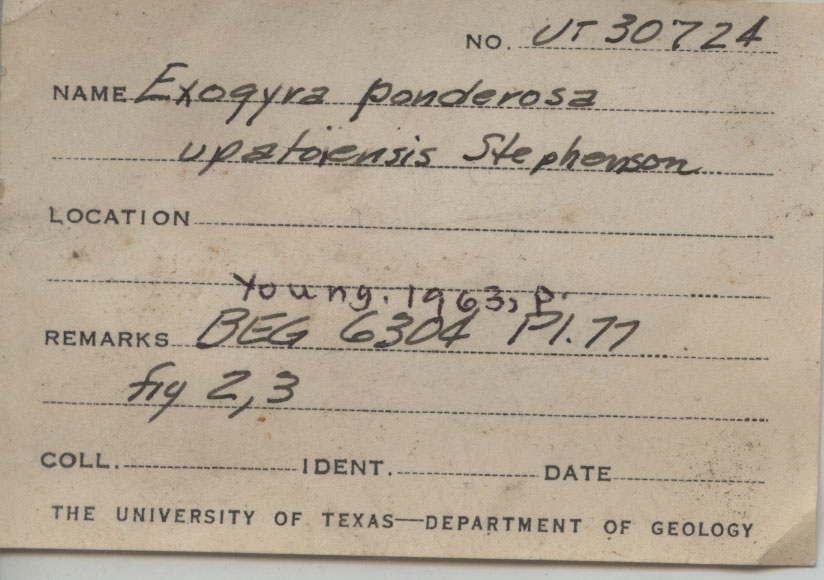 NO. UT 30724
NAME Exogyra ponderosa
upatoiensis Stephenson
LOCATION
Young. 1963, p.
REMARKS BEG 6304 Pl. 77
fig 2,3
COLL. IDENT. DATE
THE UNIVERSITY OF TEXAS—DEPARTMENT OF GEOLOGY